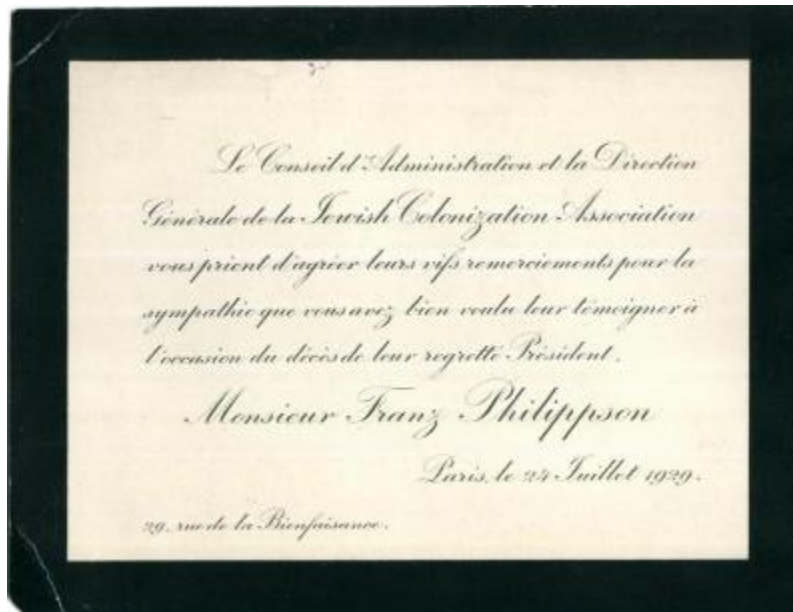 Le Conseil d'Administration et la Direction
Générale de la Jewish Colonization Association
vous prient d'agréer leurs vifs remerciements pour la
sympathie que vous avez bien voulu leur témoigner à
l'occasion du décès de leur regretté Président.
Monsieur Franz Philippson
Paris, le 24 Juillet 1929.
29, rue de la Bienfaisance.